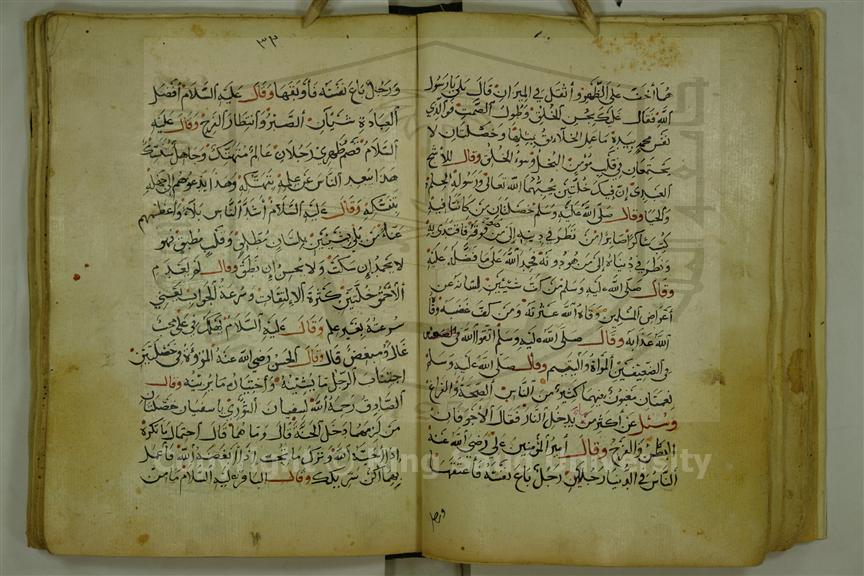 ما أخف على الظهر وأثقل في الميزان قال بلى يا رسول
الله فقال عليك بحسن الخلق وطول الصمت فوالذي
نفس محمد بيده ما عمل الخلائق بمثلها وخصلتان لا
يجتمعان في قلب مؤمن البخل وسوء الخلق وقال للأشج
العبدي إن فيك خلتين يحبهما الله تعالى ورسوله الحلم
والحيا وقال صلى الله عليه وسلم خصلتان من كانتا فيه
كتب شاكرا صابرا من نظر في دينه إلى من فوقه فاقتدى به
ونظر في دنياه إلى من هو دونه فحمد الله على ما فضله عليه
وقال صلى الله عليه وسلم من كف شيئين لسانه عن
أعراض المسلمين وقاه الله عثرته ومن كف غضبه وقاه
الله عذابه وقال صلى الله عليه وسلم اتقوا الله في
في الضعيفين المرأة واليتيم وقال صلى الله عليه وسلم
نعمتان مغبون فيهما كثير من الناس الصحة والفراغ
وسئل عن أكثر من يدخل النار فقال الأجوفان
البطن والفرج وقال أمير المؤمنين علي رضي الله عنه
الناس في الدنيا رجلان رجل باع نفسه فأعتقها
ورجل
٣٣
ورجل باع نفسه فأوبقها وقال عليه السلام أفضل
العبادة شيئان الصبر وانتظار الفرج وقال عليه
السلام قصم ظهري رجلان عالم متهتك وجاهل متنسك
هذا يبعد الناس عن علمه بتهتكه وهذا يدعوهم إلى جهله
بتنسكه وقال عليه السلام أشد الناس بلاء وأعظمهم
عناء من بلي بلسان مطلق وقلب مطبق فهو
لا يحمد إن سكت ولا يحسن إن نطق وقال لم يعدم
الأحمق خلتين كثرة الالتفات وسرعة الجواب يعني
سرعة بغير علم وقال عليه السلام يهلك في علي محب
غال ومبغض قال وقال الحسن رضي الله عنه المروءة في خصلتين
اجتناب الرجل ما يشينه واختيار ما يزينه وقال
الصادق رحمة الله لسفيان الثوري يا سفيان خصلتان
من لزمهما دخل الجنة قال وما هما قال احتمال ما تكره
إذا أحبه الله وترك ما تحب إذا أبغضه الله فاعمل
بهما أكن شريكك وقال الباقر عليه السلام ما من
Copyright © King Saud University